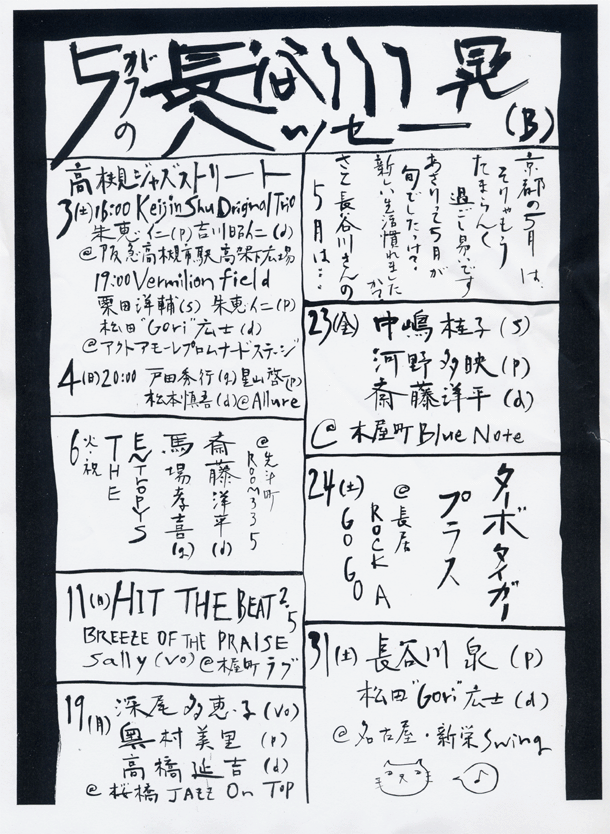 5がつの長谷川晃
ベッセー(B)
高槻ジャズストリート
3(土)16:00 Keijin Shu Original Trio
朱恵仁(p)吉川昭仁(d)
@阪急高槻市駅高架下広場
19:00 Vermilion field
栗田洋輔(s) 朱恵仁(p)
松田"Gori"広士(d)
@アクトアモーレプロムナードステージ
4(日)20:00 戸田秀行(g)星山啓(p)
松本慎吾(d)@Allure
6火・祝
THE
ENTROPYS
馬場孝喜(g)
斎藤洋平(d)
@先斗町
ROOM335
11(日)HIT THE BEAT 2.5
BREEZE OF THE PRAISE
Sally(vo)@木屋町ラブ
19(月) 深尾多恵子(vo)
奥村美里(p)
高橋延吉(d)
@桜橋JAZZ On TOP
京都の5月は、
そりゃもう
たまらんく
過ごし易いです
あさりって5月が
旬でしたっけ?
新しい生活慣れましたかって
さて長谷川さんの
5月は…
23(金) 中嶋桂子(s)
河野多映(p)
斎藤洋平(d)
@木屋町Blue Note
ターボタイガー
プラス
@長居
ROCKA
24(土)GOGO
31(土)長谷川泉(p)
松田"Gori"広士(d)
@名古屋・新栄Swing
♪